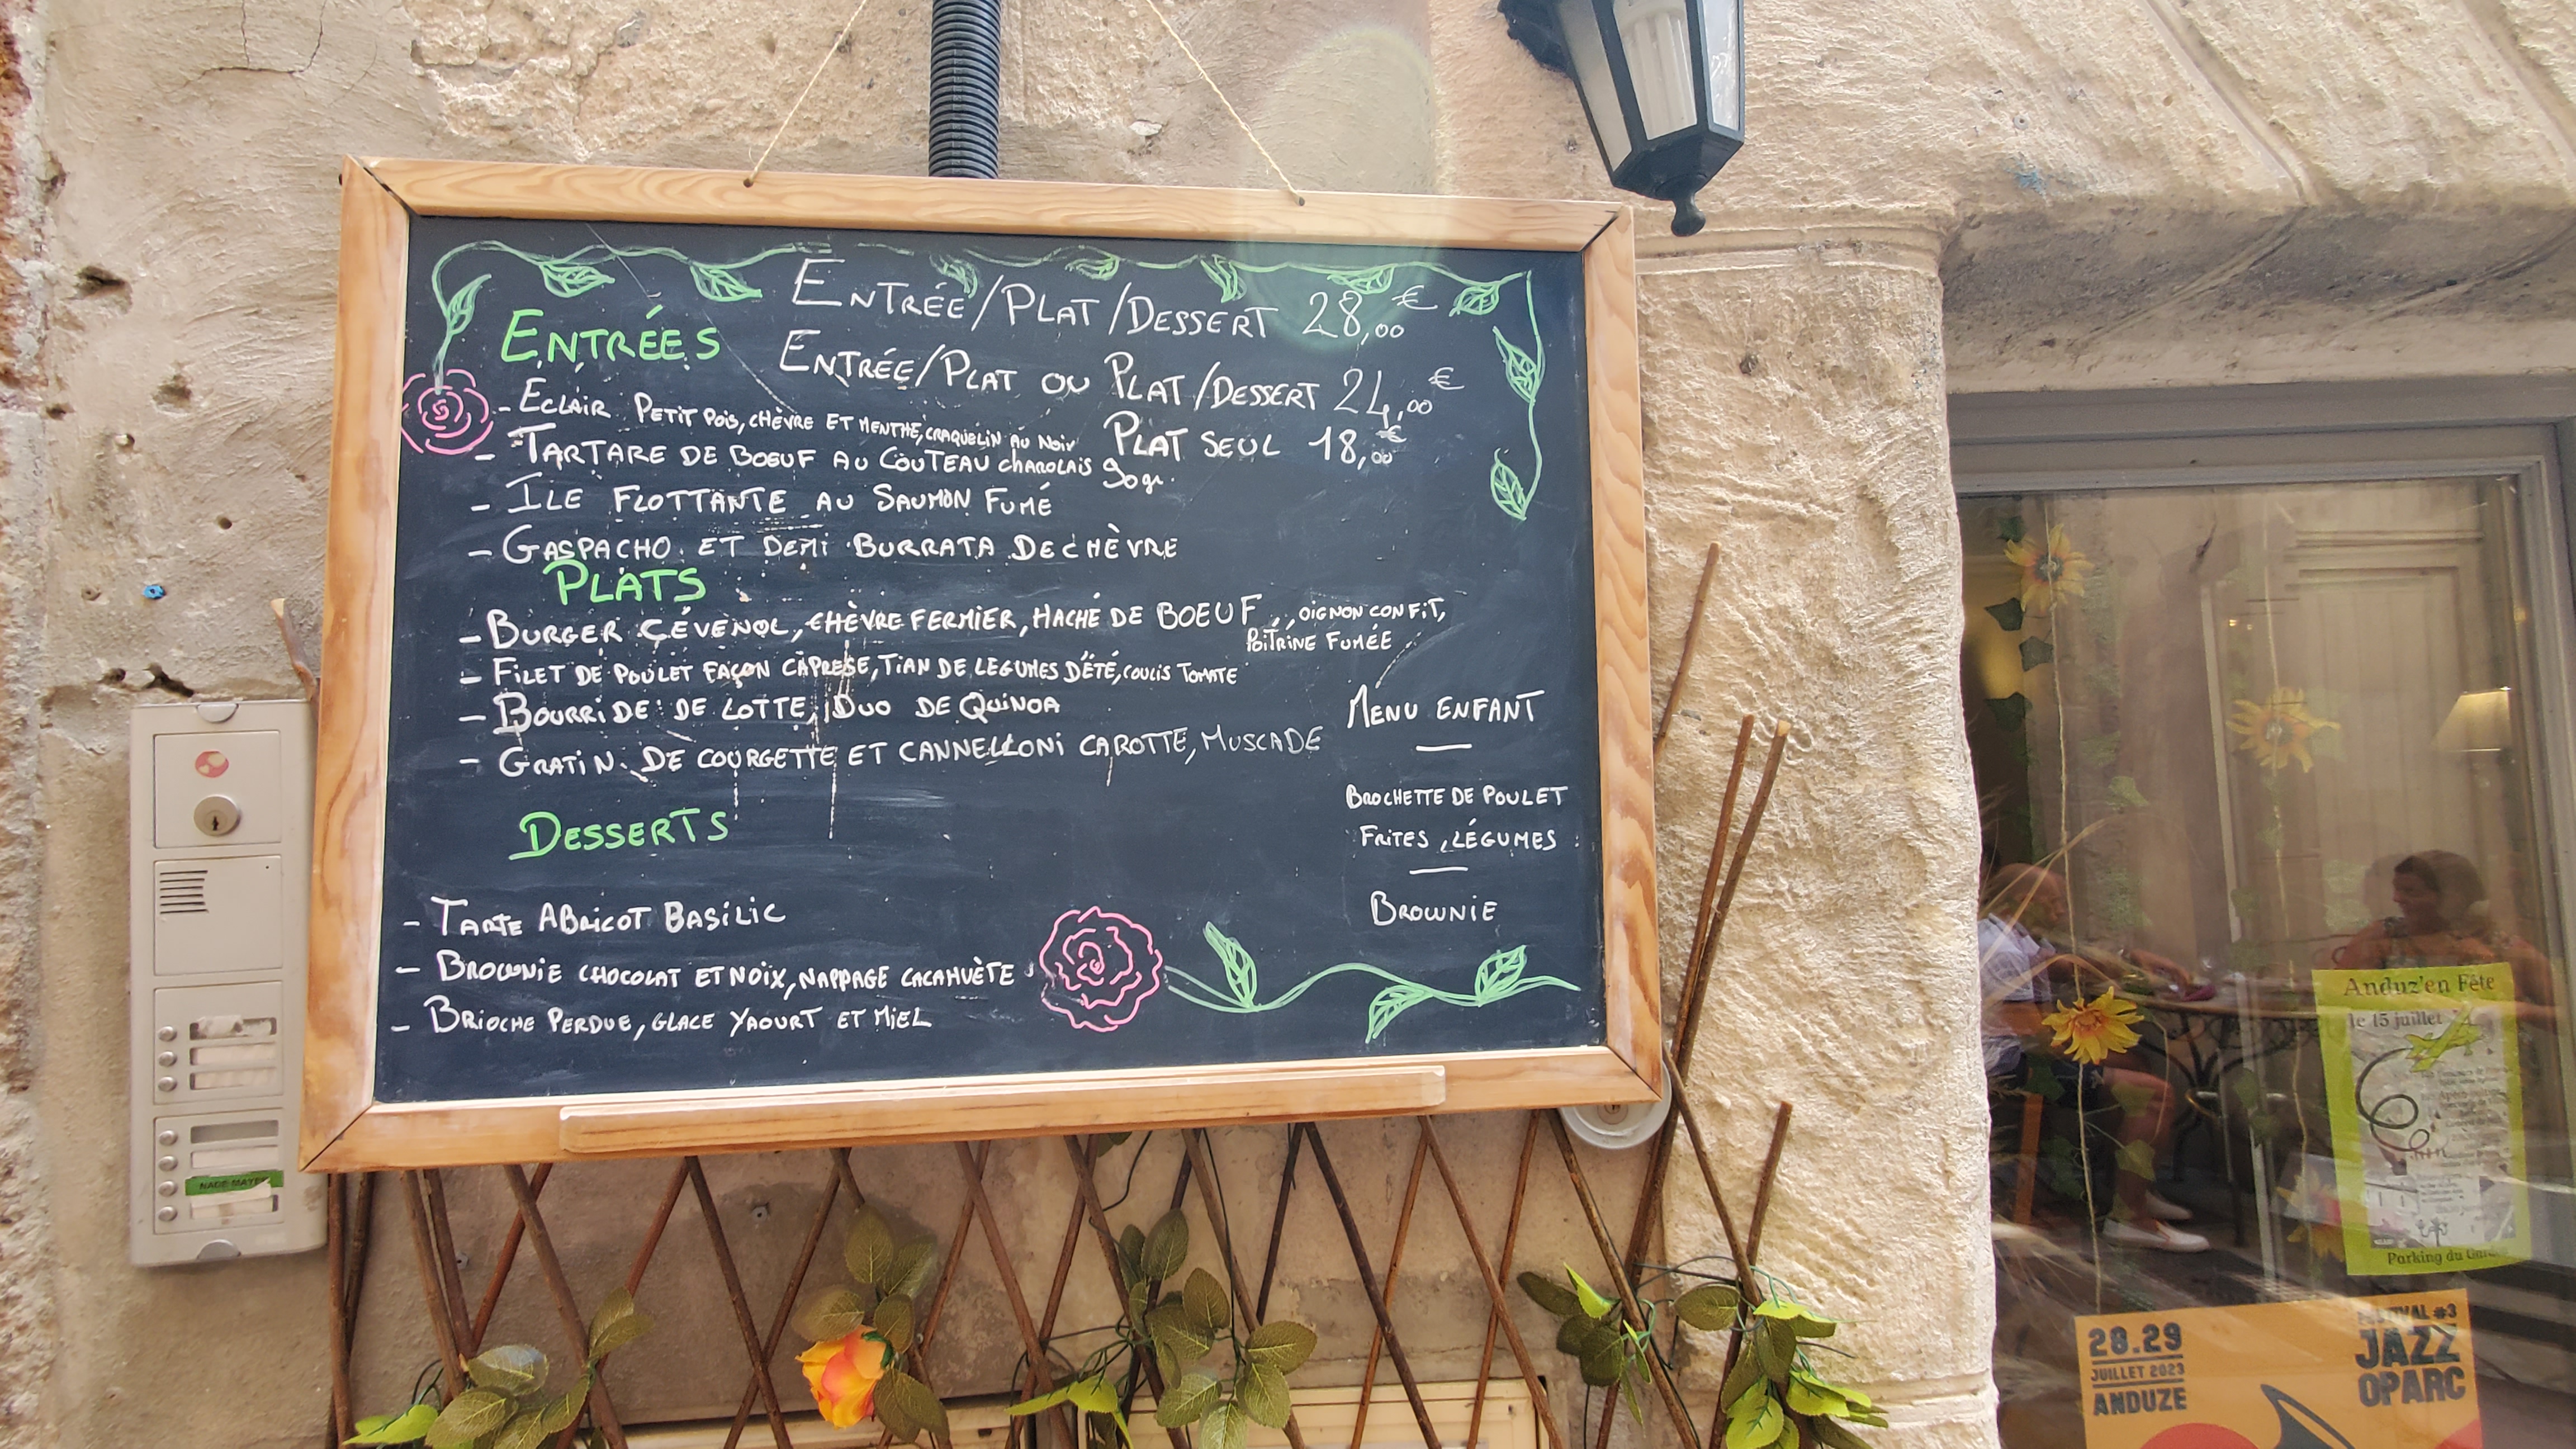 ENTRÉE/PLAT/DESSERT 28,00 €
ENTRÉE/PLAT OU PLAT/DESSERT 24,00 €
PLAT SEUL 18,00 €
ENTRÉES
- ECLAIR PETIT POIS, CHÈVRE ET MENTHE, CRAQUELIN AU NOIR
- TARTARE DE BOEUF AU COUTEAU CHAROLAIS 90gr.
- ILE FLOTTANTE AU SAUMON FUMÉ
- GASPACHO ET DEMI BURRATA DE CHÈVRE
PLATS
- BURGER CÉVENOL, CHÈVRE FERMIER, HACHÉ DE BOEUF, OIGNON CONFIT,
POITRINE FUMÉE
- FILET DE POULET FAÇON CAPRESE, TIAN DE LEGUMES D'ÉTÉ, COULIS TOMATE
- BOURRIDE DE LOTTE, DUO DE QUINOA
- GRATIN DE COURGETTE ET CANNELLONI CAROTTE, MUSCADE
DESSERTS
- TARTE ABRICOT BASILIC
- BROWNIE CHOCOLAT ET NOIX, NAPPAGE CACAHUÈTE
- BRIOCHE PERDUE, GLACE YAOURT ET MIEL
MENU ENFANT
BROCHETTE DE POULET
FRITES, LÉGUMES
BROWNIE
Anduz'en Fête
le 15 juillet
Parking du
28.29
JUILLET 2023
ANDUZE
#3
JAZZ
OPARC